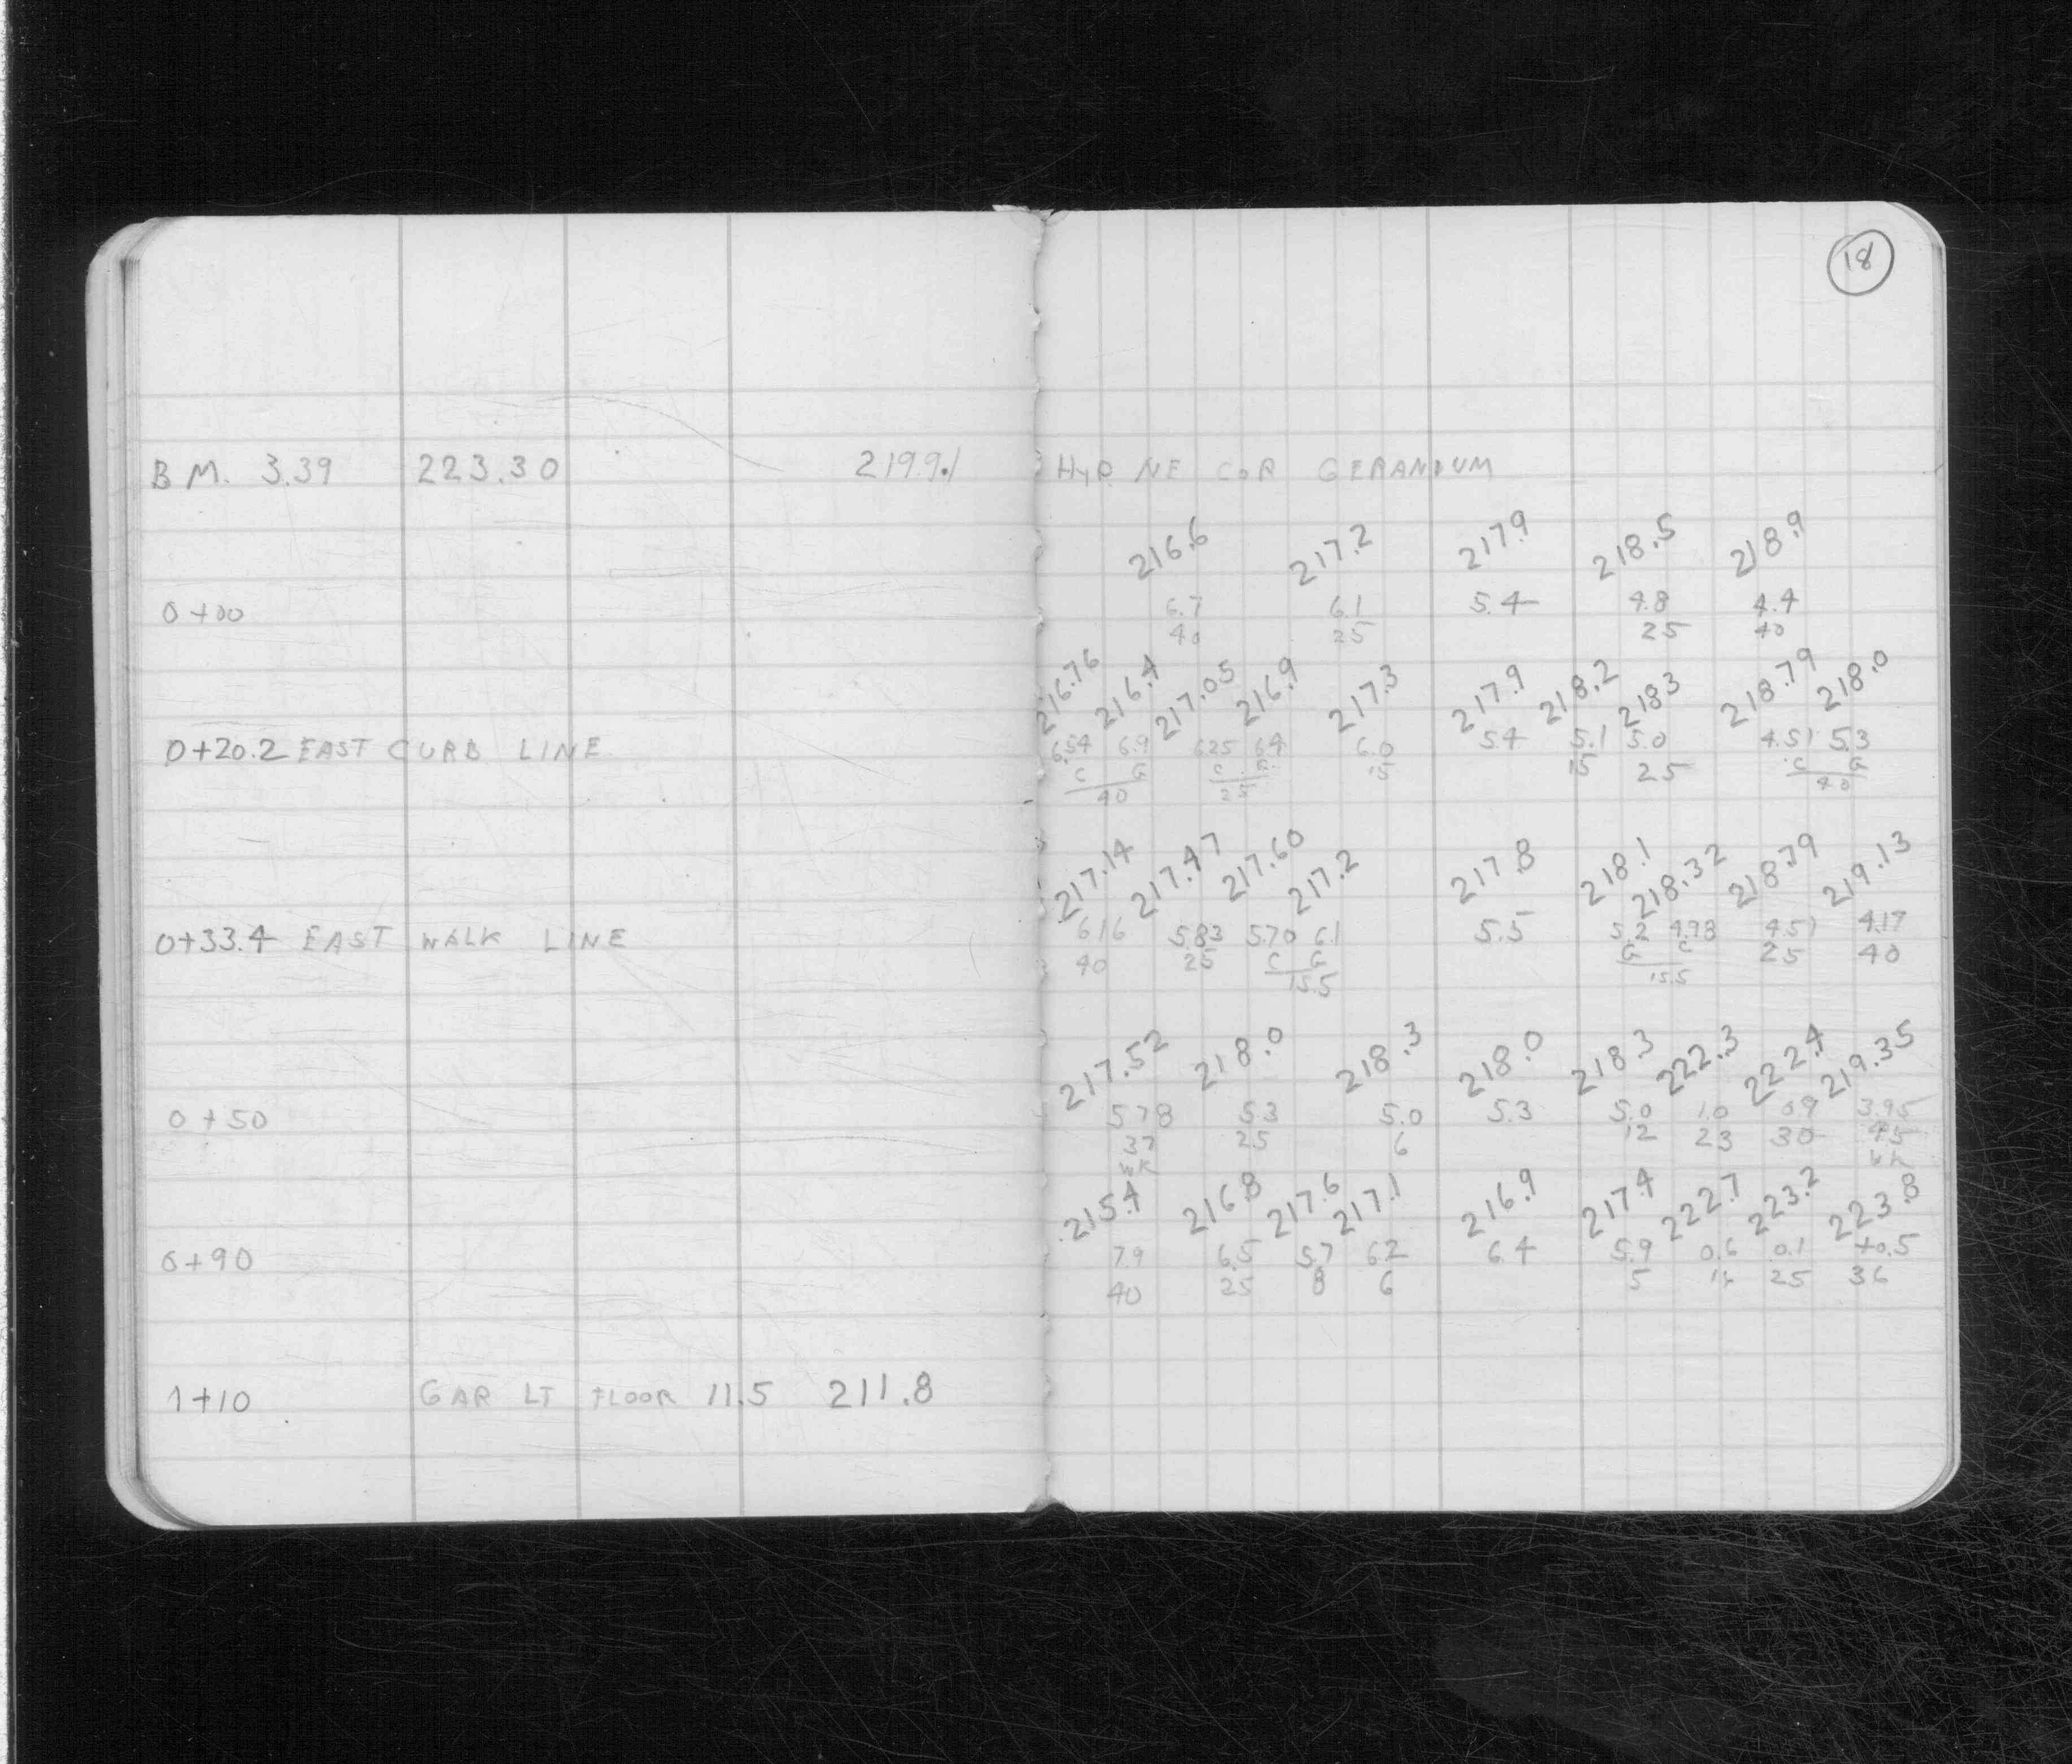 18
B M. 3.39 223.30 219.91 HYD NE COR GERANIUM
216.6 217.2 217.9 218.5 218.9
0+00 6.7 6.1 5.4 4.8 4.4
40 25 25 40
216.76 216.4 217.05 216.9 217.3 217.9 218.2 218.3 218.79 218.0
0+20.2 EAST CURB LINE 6.54 6.9 6.25 6.4 6.0 5.4 5.1 5.0 4.51 5.3
C G C G 15 15 25 C G
40 25 40
217.14 217.47 217.60 217.2 217.8 218.1 218.32 218.79 219.13
0+33.4 EAST WALK LINE 6.16 5.83 5.70 6.1 5.5 5.2 4.98 4.51 4.17
40 25 C G G C 25 40
15.5 15.5
217.52 218.0 218.3 218.0 218.3 222.3 222.4 219.35
0+50 5.78 5.3 5.0 5.3 5.0 1.0 0.9 3.95
37 25 6 12 23 30 45
WK WK
215.4 216.8 217.6 217.1 216.9 217.4 222.7 223.2 223.8
0+90 7.9 6.5 5.7 6.2 6.4 5.9 0.6 0.1 +0.5
40 25 8 6 5 25 36
1+10 GAR LT FLOOR 11.5 211.8